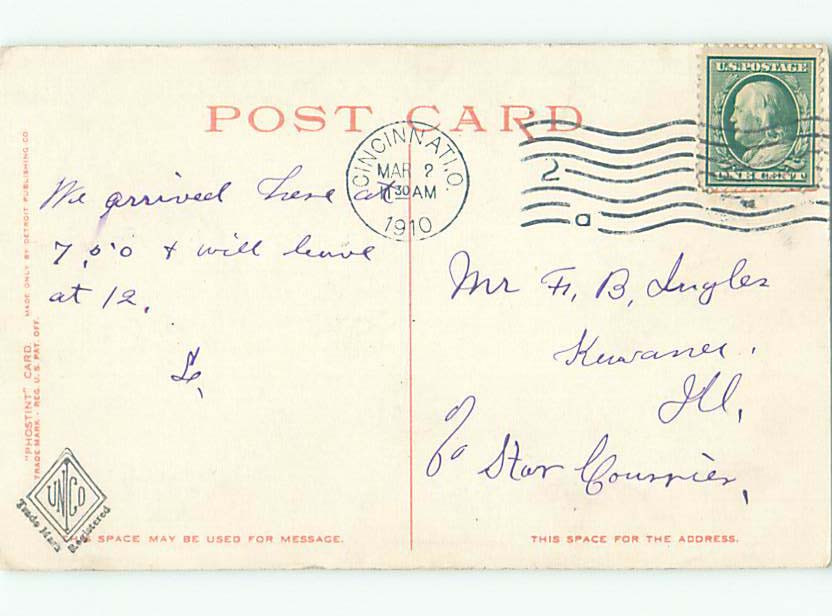 POST CARD
U.S. POSTAGE
ONE CENT
CINCINNATI, O.
MAR 2
11 30 AM
1910
2
a
We arrived here at
7.50 & will leave
at 12.
Mr F. B. Ingles
Kewanee.
Ill,
c/o Star Courrier,
"PHOSTINT" CARD. MADE ONLY BY DETROIT PUBLISHING CO.
TRADE MARK - REG. U.S. PAT. OFF.
UNCO
Trade Mark Registered
THIS SPACE MAY BE USED FOR MESSAGE.
THIS SPACE FOR THE ADDRESS.